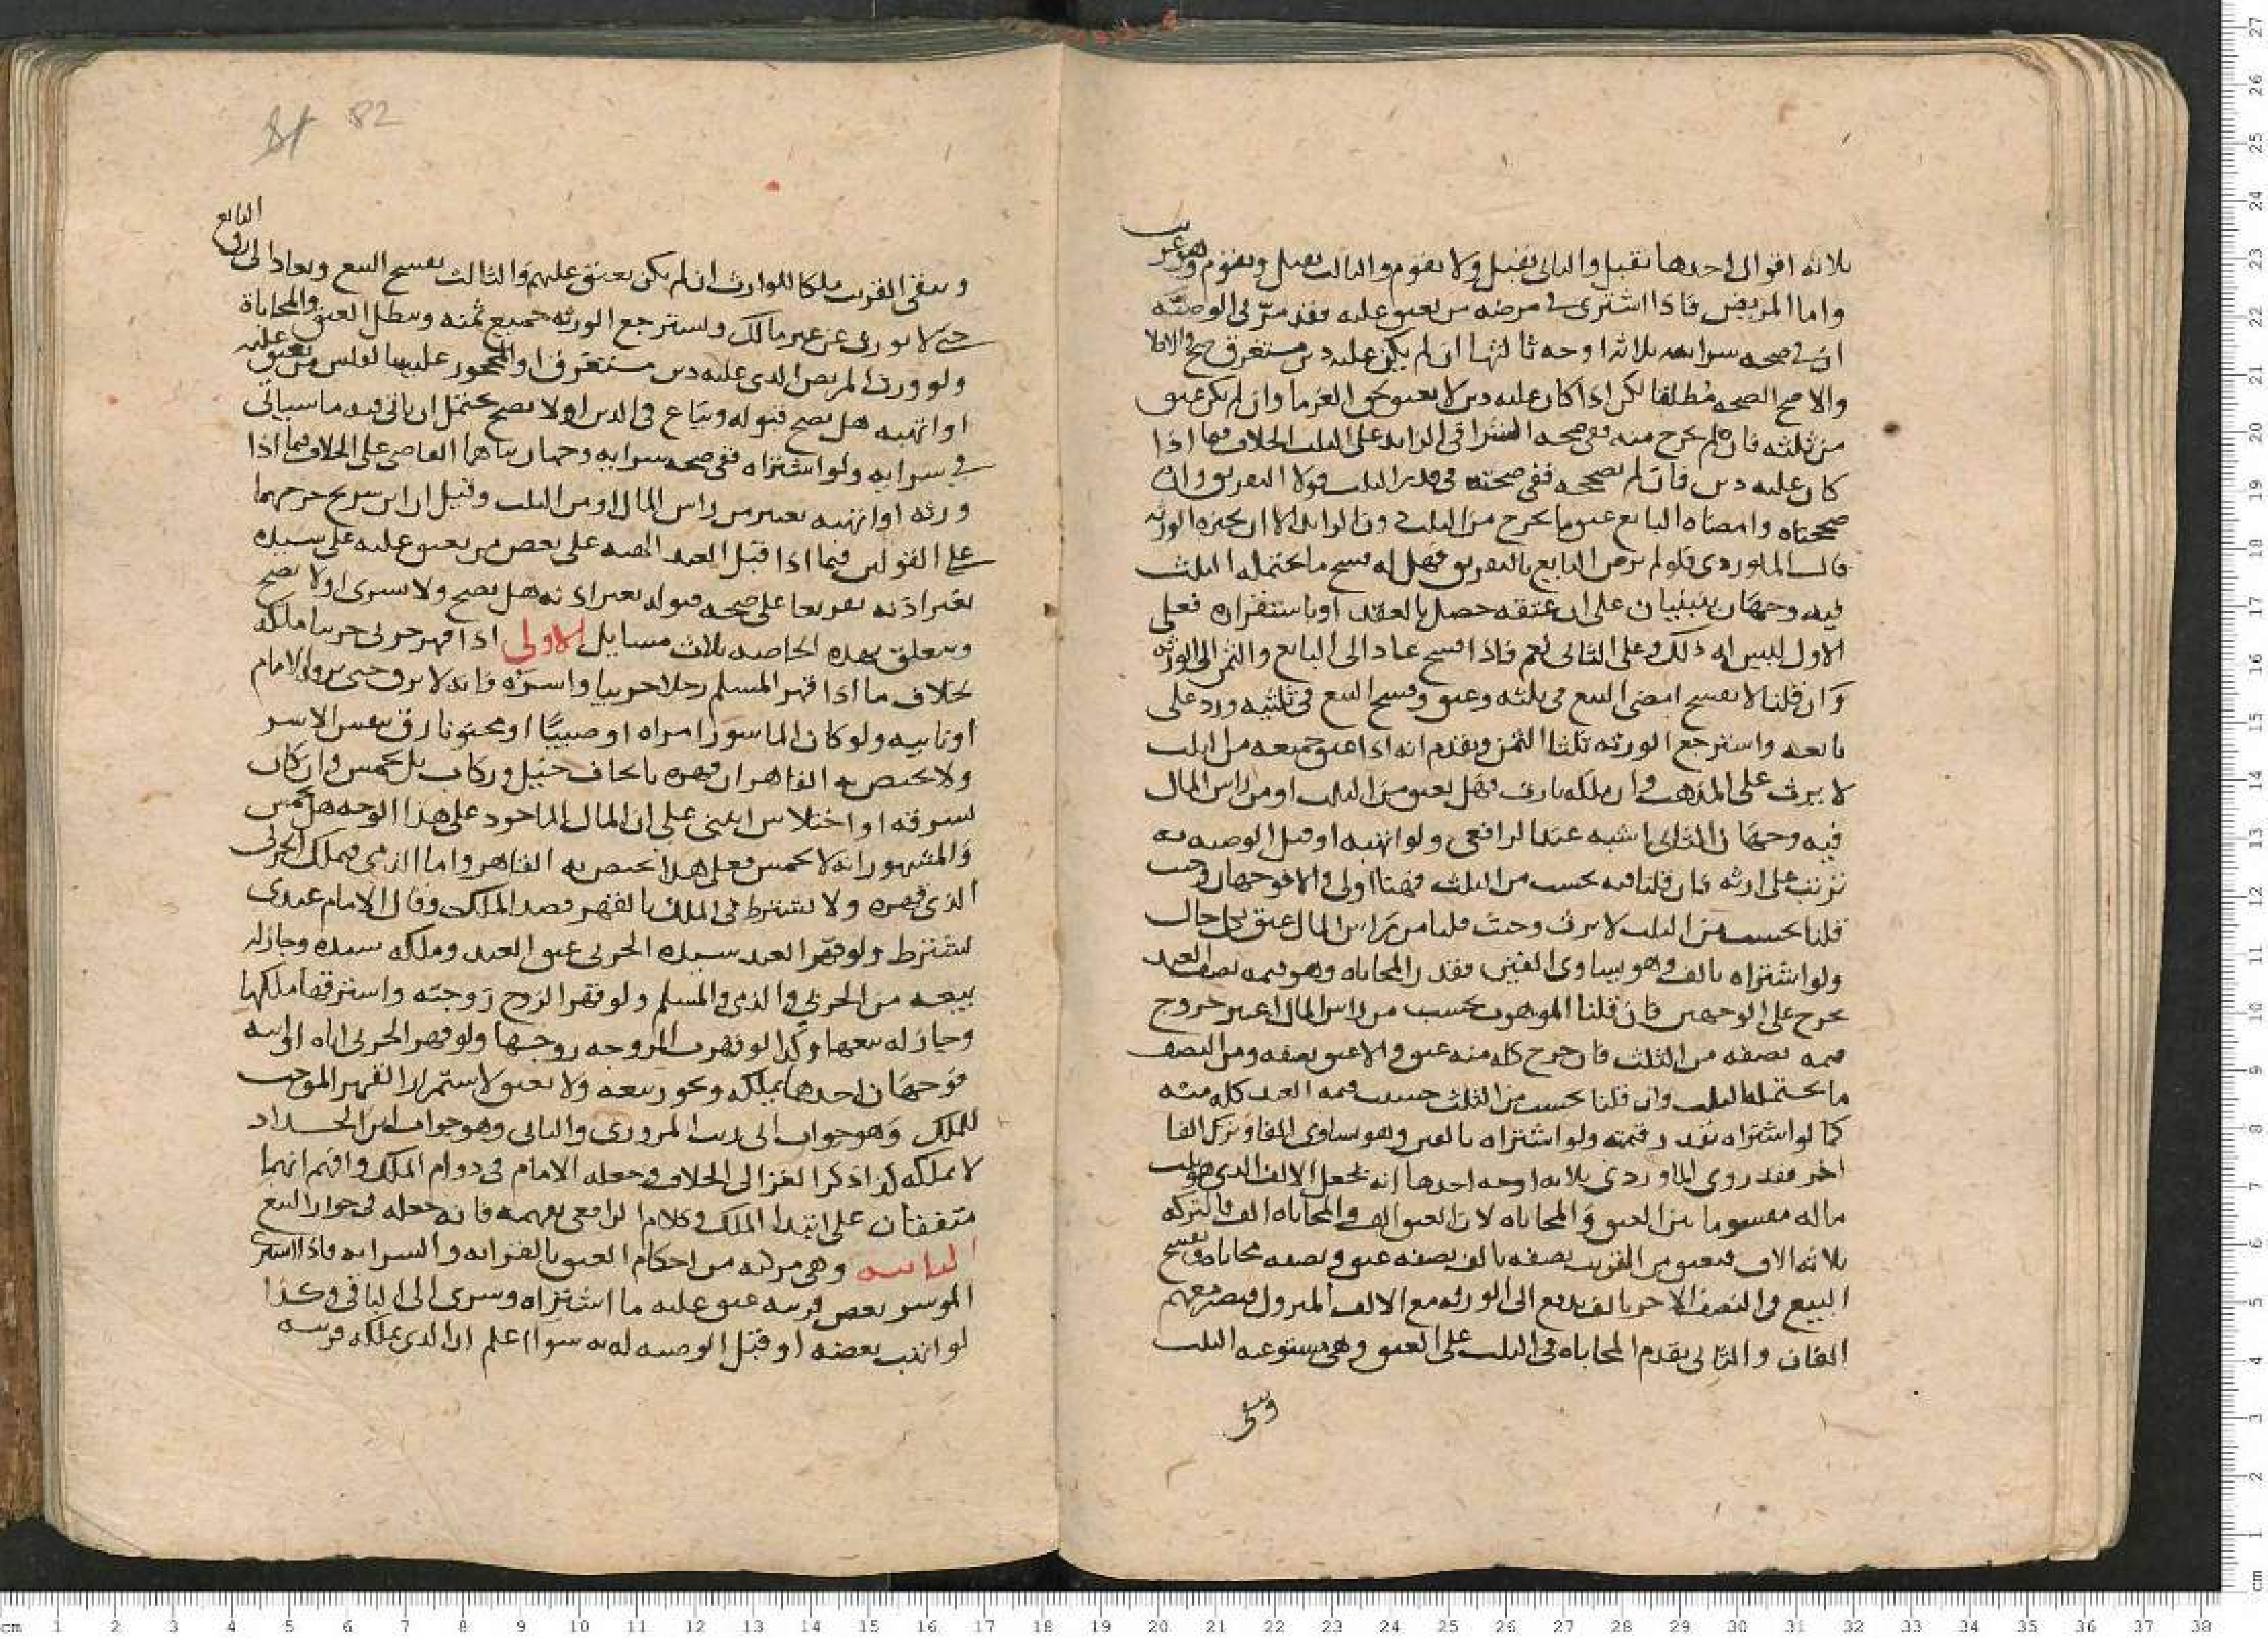 ثلاثه اقوال احدها تقبل والثاني تقبل ولا يقوم والثالث تقبل ويقوم وهو غريب
واما المريض فاذا اشترى في مرضه من يعتق عليه فقد مرّ في الوصيّه
ان في صحه شرائه ثلاثة اوجه ثالثها ان لم يكن عليه دين مستغرق صح والا فلا
والاصح الصحه مطلقا لكن اذا كان عليه دين لا يعتق لحق الغرما وان لم يكن عتق
من ثلثه فان لم يخرج منه ففي صحه الشرا في الزايد على الثلث الخلاف فيما اذا
كان عليه دين فان لم نصححه ففي صحته في قدر الثلث قولا التفريق وان
صححناه وامضاه البايع عتق ما يخرج من الثلث دون الزايد الا ان يجيزه الورثه
قال الماوردي فلو لم يرض البايع بالتفريق فهل له فسح ما يحتمله الثلث
فيه وجهان ينبنيان على ان عتقه حصل بالعقد او باستقراره فعلى
الاول ليس له ذلك وعلى الثاني نعم فاذا فسح عاد الى البايع والثمن الى الورثه
وان قلنا لا يفسح امضى البيع في ثلثه وعتق وفسح البيع في ثلثيه ورد على
بايعه واسترجع الورثه ثلثا الثمن وتقدم انه اذا عتق جميعه من الثلث
لا يرث على المذهب وان ملكه بارث فهل يعتق من الثلث او من راس المال
فيه وجهان الثاني اشبه عند الرافعي ولو اتهبه او قبل الوصيه به
ترتب على ارثه فان قلنا فيه يحسب من الثلث فهنا اولى والا فوجهان وحيث
قلنا يحسب من الثلث لا يرث وحيث قلنا من راس المال عتق بكل حال
ولو اشتراه بالف وهو يساوي الفين فقدر المحاباه وهو قيمه نصف العبد
يخرج على الوجهين فان قلنا الموهوب يحسب من راس المال اعتبر خروج
قيمه نصفه من الثلث فان خرج كله منه عتق والا عتق نصفه ومن النصف
ما يحتمله الثلث وان قلنا يحسب من الثلث حسبت قيمه العبد كله منه
كما لو اشتراه بقدر قيمته ولو اشتراه بالفين وهو يساوي الفا وترك الفا
اخر فقد روى الماوردي ثلاثه اوجه احدها انه يجعل الالف الذي هو ثلث
ماله مقسوما بين العتق والمحاباه لان العتق الف والمحاباه الف والتركه
ثلاثه الاف فيعتق من القريب نصفه بالف نصفه عتق ونصفه محاباه ويفسح
البيع في النصف الاخر بالف يدفع الى الورثه مع الالف المتروك فيصير معهم
الفان والثاني يقدم المحاباه في الثلث على العتق وهي مستوعبه الثلث
ويبقى
82
ويبقى القريب ملكا للوارث ان لم يكن يعتق عليهم والثالث يفسح البيع ويعاد الى رق البايع
حتى لا يورث عن غير مالك ويسترجع الورثه جميع ثمنه ويبطل العتق والمحاباة
ولو ورث المريض الذي عليه دين مستغرق او المحجور عليه بالفلس من يعتق عليه
او اتهبه هل يصح قبوله ويباع في الدين او لا يصح يحتمل ان ياتي فيه ما سياتي
في شرايه ولو اشتراه ففي صحه شرايه وجهان بناهما القاضي على الخلاف فيما اذا
ورثه او اتهبه يعتبر من راس المال او من الثلث وقيل ان ابن سريج خرجهما
على القولين فيما اذا قبل العبد الهبه على بعض من يعتق عليه على سيده
بغير اذنه تفريعا على صحه قبوله بغير اذنه هل يصح ولا يسرى او لا يصح
ويتعلق بهذه الخاصيه ثلاث مسايل الاولى اذا قهر حربي حربيا ملكه
بخلاف ما اذا قهر المسلم رجلا حربيا واسره فانه لا يرق حتى يرقه الامام
او نايبه ولو كان الماسور امراه او صبيّا او مجنونا رق بنفس الاسر
ولا يختص به القاهر ان قهره بايجاف خيل وركاب بل يخمس وان كان
بسرقه او اختلاس ابتنى على ان المال الماخوذ على هذا الوجه هل يخمس
والمشهور انه لا يخمس فعلى هذا يختص به القاهر واما الذمي فيملك الحربي
الذي قهره ولا يشترط في الملك بالقهر قصد الملك وقال الامام عندي
يشترط ولو قهر العبد سيده الحربي عتق العبد وملكه سيده وجاز له
بيعه من الحربي والذمي والمسلم ولو قهر الزوج زوجته واسترقها ملكها
وجاز له بيعها وكذا لو قهرت المزوجه زوجها ولو قهر الحربي اباه او ابنه
فوجهان احدهما يملكه ويجوز بيعه ولا يعتق لاستمرار القهر الموجب
للملك وهو جواب ابي زيد المروزي والثاني وهو جواب ابن الحداد
لا يملكه كذا ذكر الغزالي الخلاف وجعله الامام في دوام الملك وافهم انهما
متفقان على ابتدا الملك وكلام الرافعي يفهمه فانه جعله في جواز البيع
الثانيه وهي مركبه من احكام العتق بالقرابه والسرايه فاذا اشترى
الموسر بعض قريبه عتق عليه ما اشتراه وسرى الى الباقي وكذا
لو اتهب بعضه او قبل الوصيه له به سوا اعلم ان الذي يملكه قريبه